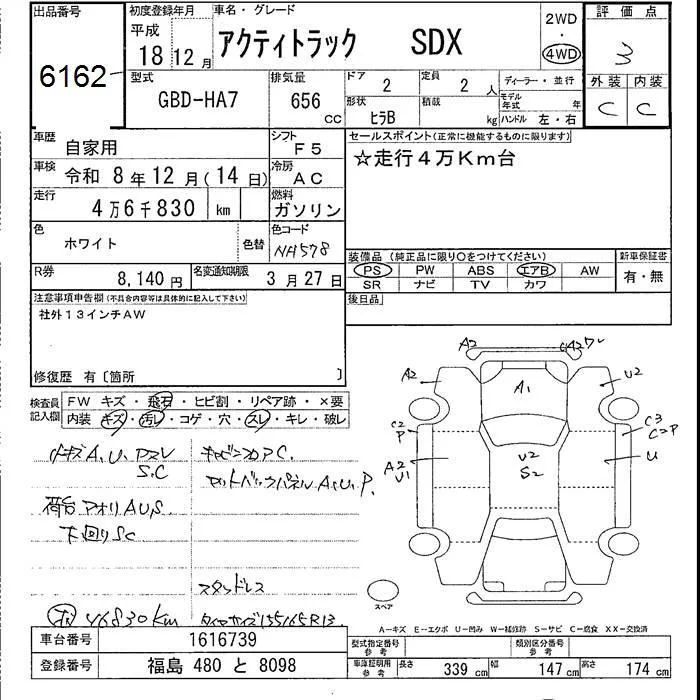 出品番号 初度登録年月 車名・グレード 2WD 評価点
6162 平成 18 12月 アクティトラック SDX ・ 4WD 3
型式 排気量 ドア 定員 ディーラー・並行 外装 内装
GBD-HA7 656 cc 2 2人 モデル年式 年 C C
形状 積載
ヒラB kg ハンドル 左・右
車歴 自家用 シフト F5 セールスポイント(正常に機能するものに限ります)
車検 令和 8年12月(14日) 冷房 AC ☆走行4万Km台
走行 4万6千830 km 燃料 ガソリン
色 ホワイト 色替 色コード NH578
装備品(純正品に限り○をつけてください) 新車保証書
R券 8,140円 名変通知期限 3月27日 PS PW ABS エアB AW 有・無
SR ナビ TV カワ
注意事項申告欄(不具合内容等は具体的に記入して下さい) 後日品
社外13インチAW
修復歴 有〔箇所 〕
検査員記入欄 FW キズ・飛石・ヒビ割・リペア跡・×要
内装 キズ・汚レ・コゲ・穴・スレ・キレ・破レ
A2 A2
A2 A1 U2
C2 P C3 C2P
A2 U1 U2 S2 U
キズA.U. キャビンフロアC.
S.C A.U.P.
荷台アオリAUS.
下回りSC
スタッドレス
46830km タイヤサイズ155165R13.
スペア
A―キズ E―エクボ U―凹み W―補修跡 S―サビ C―腐食 XX―交換済
車台番号 1616739 型式指定番号 参考 類別区分番号 参考
登録番号 福島 480 と 8098 車庫証明用 参考 長さ 339cm 幅 147cm 高さ 174cm